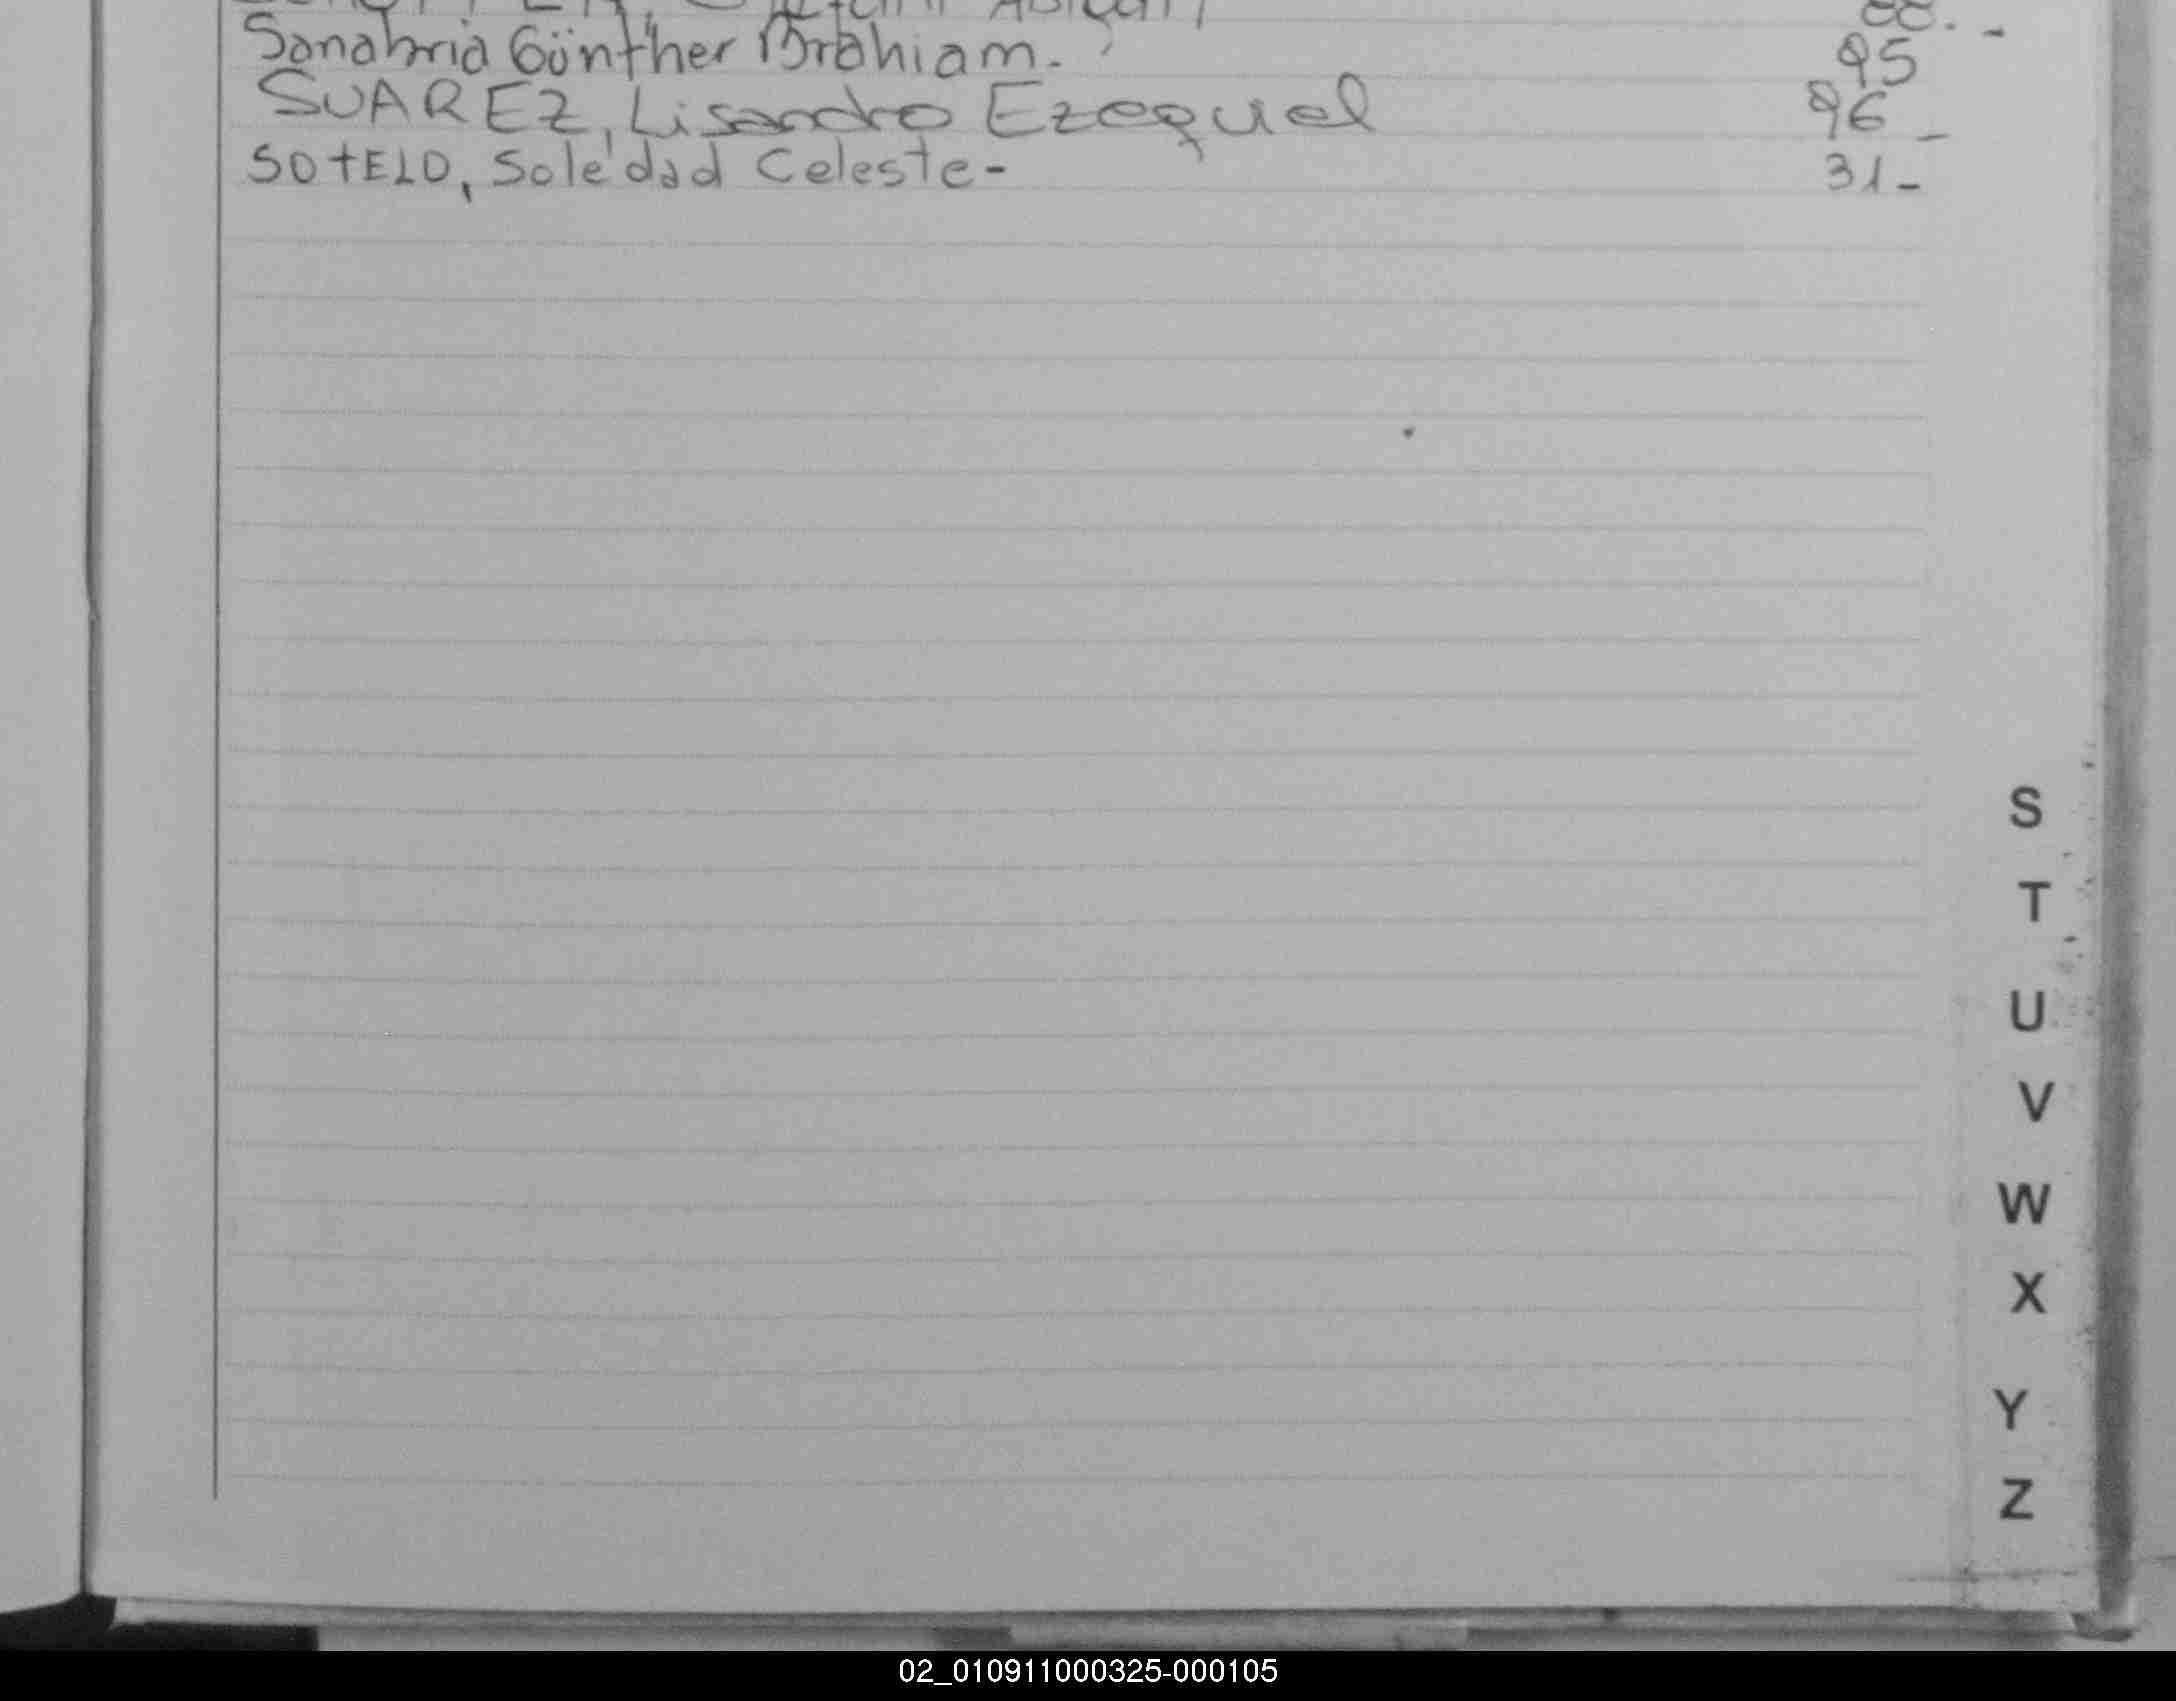 Sanabria Günther Brahiam. 95
SUAREZ, Lisandro Ezequel 96_
SOtELO, Soledad Celeste- 31-
S
T
U
V
W
X
Y
Z
02_010911000325-000105